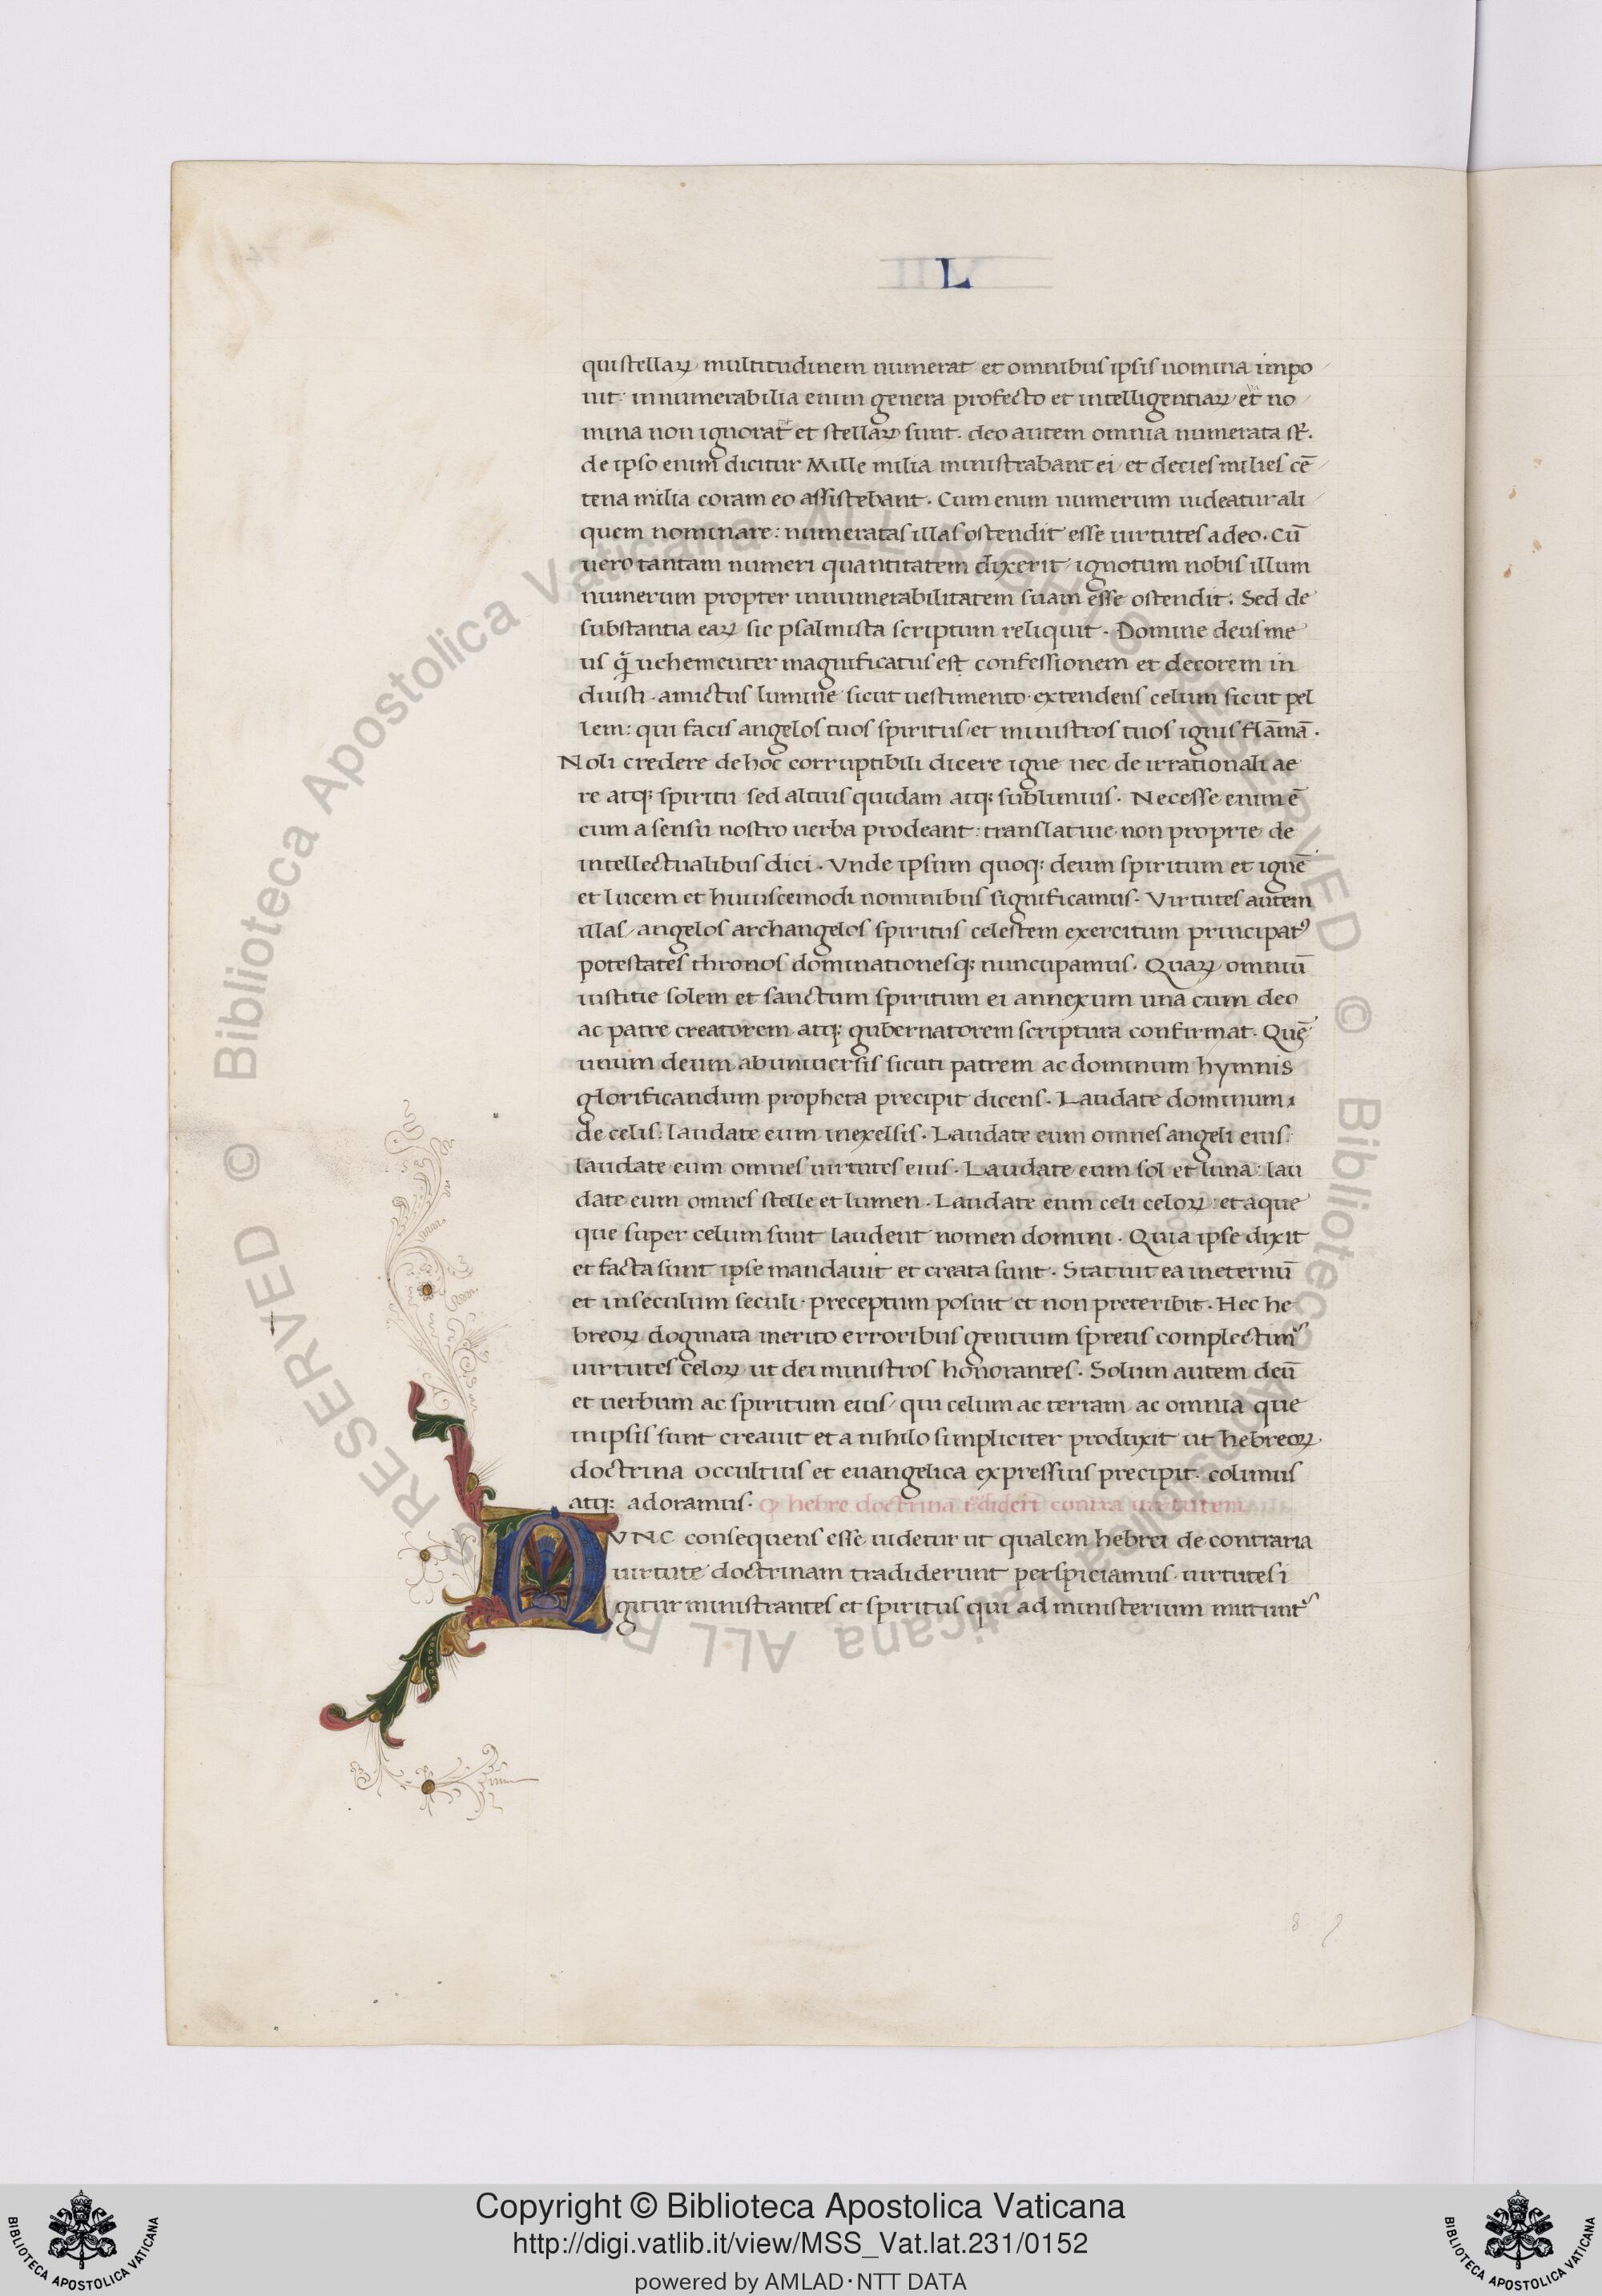 L
qui stellaꝝ multitudinem numerat et omnibus ipsis nomina impo
nit: innumerabilia enim genera profecto et intelligentiaꝝ et no
mina non ignorat et stellaꝝ sunt. deo autem omnia numerata st̄.
de ipso enim dicitur Mille milia ministrabant ei et decies milies cē
tena milia coram eo assistebant. Cum enim numerum uideatur ali
quem nominare: numeratas illas ostendit esse uirtutes a deo. Cū
uero tantam numeri quantitatem dixerit ignotum nobis illum
numerum propter innumerabilitatem suam esse ostendit. Sed de
substantia eaꝝ sic psalmista scriptum reliquit. Domine deus me
us q̄ uehementer magnificatus est confessionem et decorem in
duisti. amictus lumine sicut uestimento. extendens celum sicut pel
lem: qui facis angelos tuos spiritus et ministros tuos ignis flāmā.
Noli credere de hoc corruptibili dicere igne nec de irrationali ae
re atq; spiritu sed altius quidam atq; sublimius. Necesse enim ē
cum a sensu nostro uerba prodeant: translatiue non proprie de
intellectualibus dici. Vnde ipsum quoq; deum spiritum et ignē
et lucem et huiuscemodi nominibus significamus. Virtutes autem
illas angelos archangelos spiritus celestem exercitum principatꝰ
potestates thronos dominationesq; nuncupamus. Quaꝝ omniū
iustitie solem et sanctum spiritum ei annexum una cum deo
ac patre creatorem atq; gubernatorem scriptura confirmat. Quē
unum deum ab uniuersis sicuti patrem ac dominum hymnis
glorificandum propheta precipit dicens. Laudate dominum
de celis: laudate eum in exelsis. Laudate eum omnes angeli eius:
laudate eum omnes uirtutes eius. Laudate eum sol et luna: lau
date eum omnes stelle et lumen. Laudate eum celi celoꝝ: et aque
que super celum sunt laudent nomen domini. Quia ipse dixit
et facta sunt ipse mandauit et creata sunt. Statuit ea in eternū
et in seculum seculi. preceptum posuit et non preteribit. Hec he
breoꝝ dogmata merito erroribus gentium spretis complectimꝰ
uirtutes celoꝝ ut dei ministros honorantes. Solum autem deū
et uerbum ac spiritum eius qui celum ac terram ac omnia que
in ipsis sunt creauit et a nihilo simpliciter produxit ut hebreoꝝ
doctrina occultius et euangelica expressius precipit. colimus
atq; adoramus. hebre doctrina contra uirtutem
NVNC consequens esse uidetur ut qualem hebrei de contraria
uirtute doctrinam tradiderunt perspiciamus. uirtutes i
gitur ministrantes et spiritus qui ad ministerium mittuntꝰ
© Biblioteca Apostolica Vaticana ALL RIGHTS RESERVED © Biblioteca Apostolica Vaticana ALL RIGHTS RESERVED
Copyright © Biblioteca Apostolica Vaticana
http://digi.vatlib.it/view/MSS_Vat.lat.231/0152
powered by AMLAD·NTT DATA
BIBLIOTECA APOSTOLICA VATICANA
BIBLIOTECA APOSTOLICA VATICANA